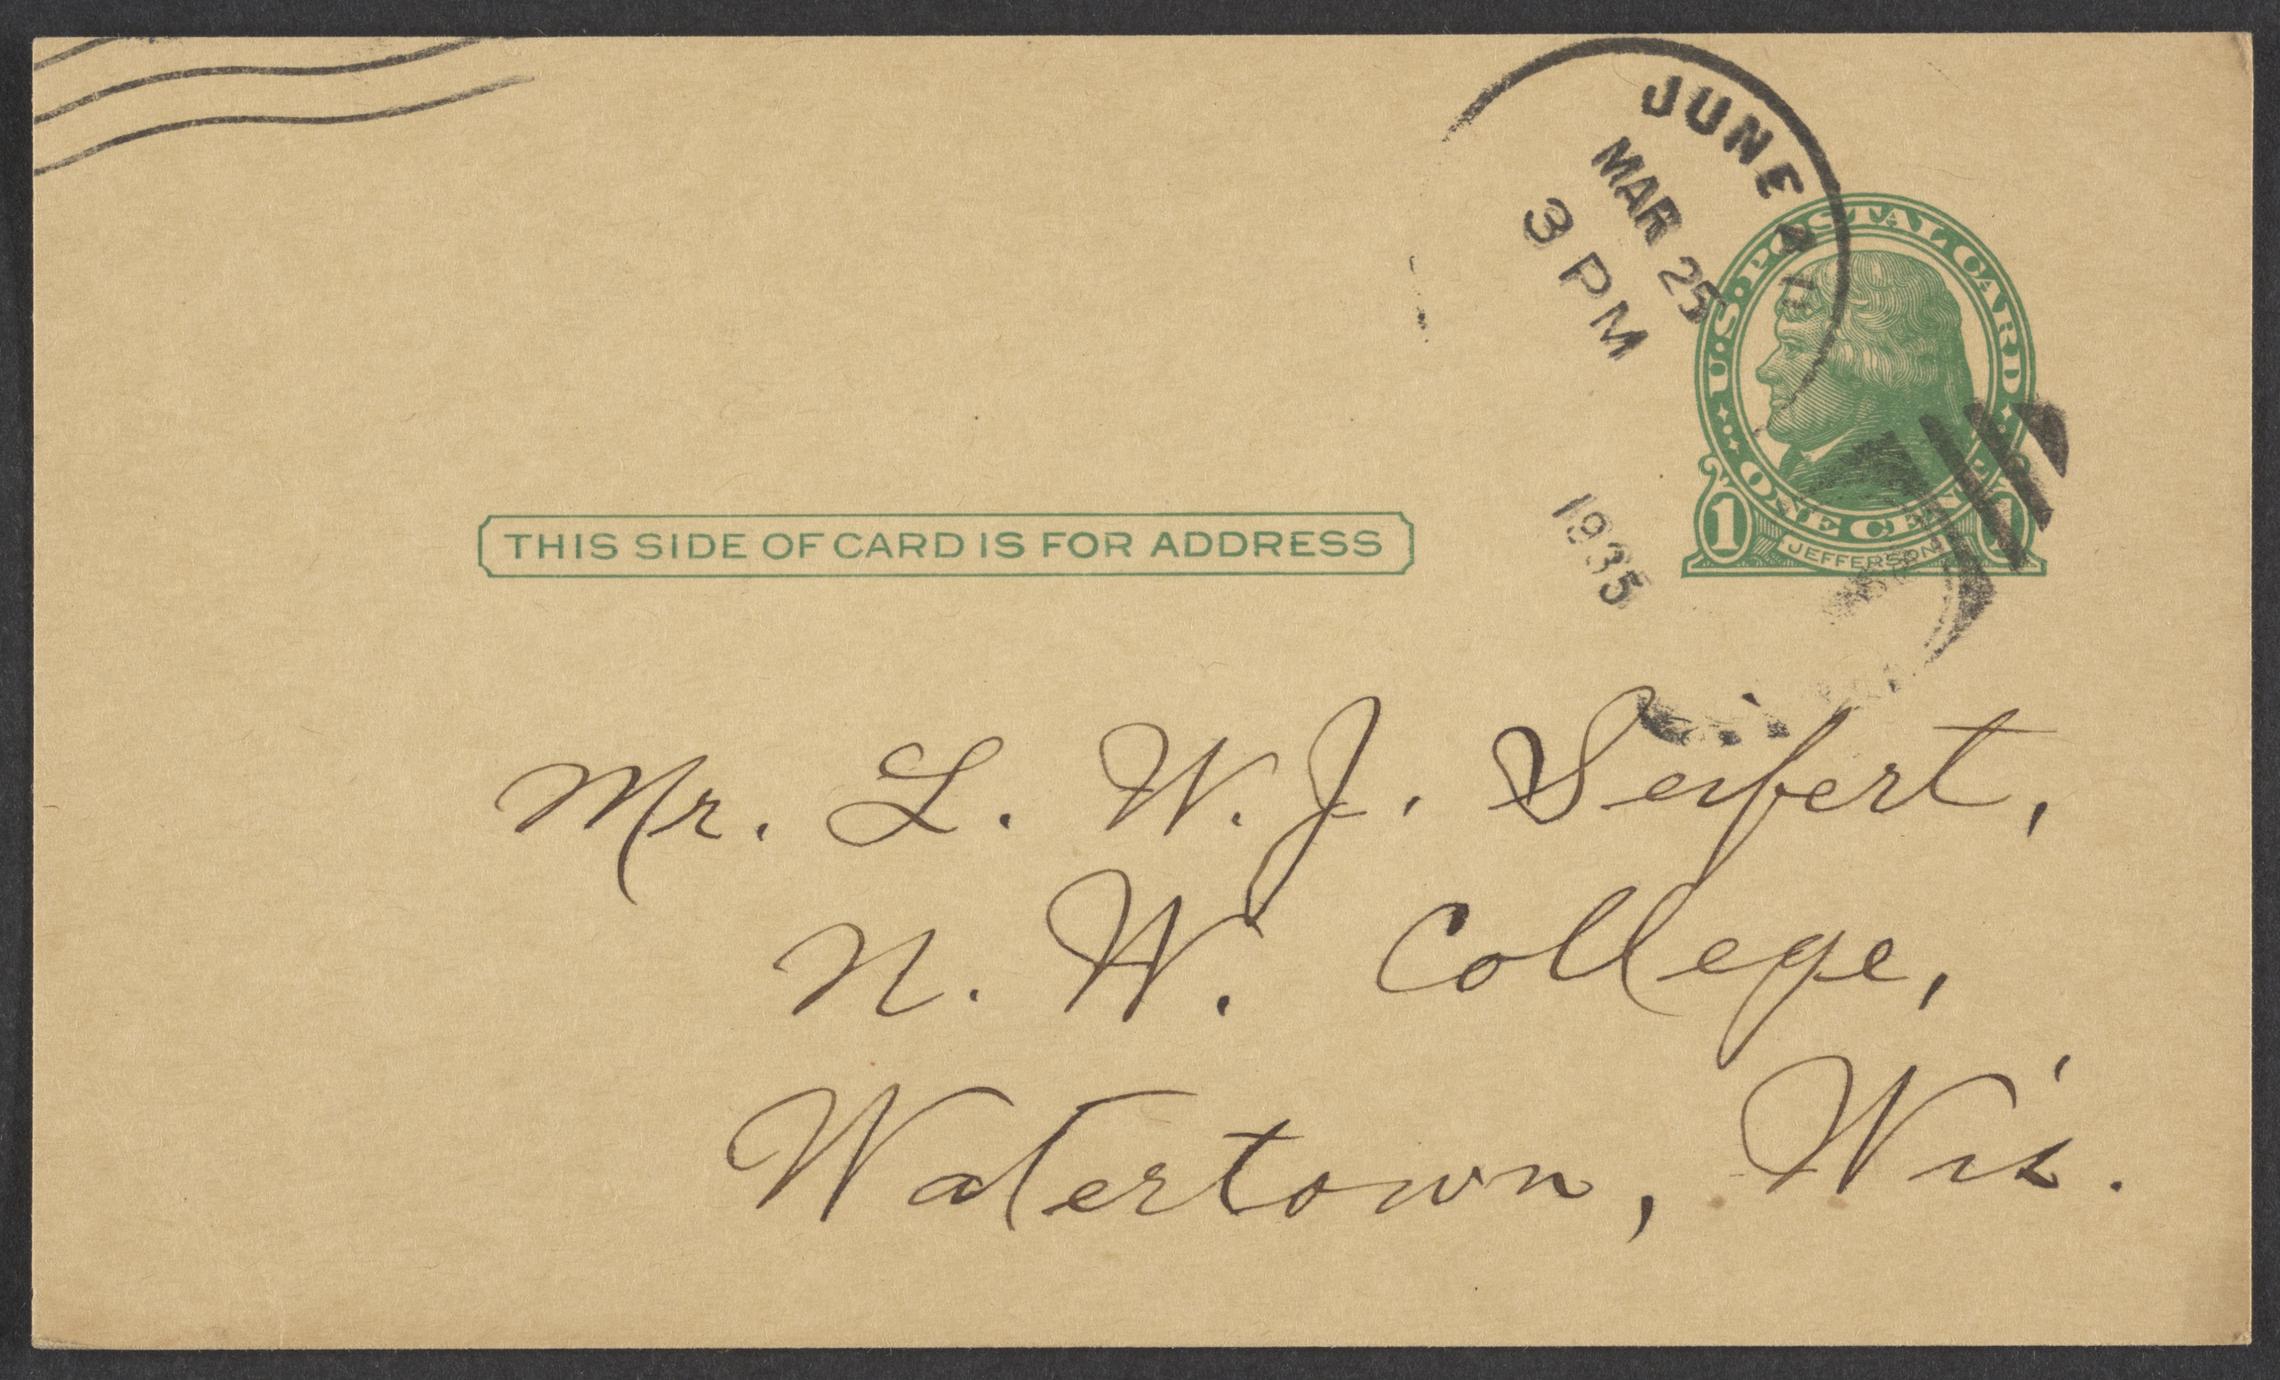 JUNEAU
MAR 25
3 PM
1935
U.S. POSTAL CARD
ONE CENT
1 1
JEFFERSON
THIS SIDE OF CARD IS FOR ADDRESS
Mr. L. W. J. Seifert,
N. W. College,
Watertown, Wis.